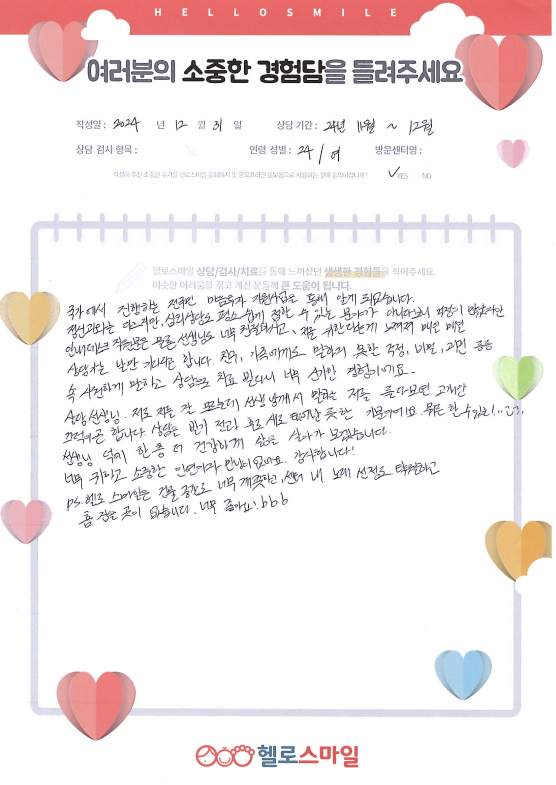 HELLOSMILE
여러분의 소중한 경험담을 들려주세요
작성일 : 2024 년 12 월 31 일 상담 기간 : 24년 11월 ~ 12월
상담 검사 항목 : 연령 성별 : 24 / 여 방문센터명 :
작성해 주신 소중한 후기를 헬로스마일 홈페이지 및 온오프라인 홍보용으로 사용하는 것에 동의하십니까? ✓YES NO
헬로스마일 상담/검사/치료를 통해 느끼셨던 생생한 경험들을 적어주세요.
비슷한 어려움을 겪고 계신 분들께 큰 도움이 됩니다.
국가에서 진행하는 전국민 마음투자 지원사업을 통해 알게 되었습니다.
정신과와는 다르지만, 심리상담도 평소 쉽게 접할 수 있는 분야가 아니다보니 걱정이 많았지만
안내데스크 직원분은 물론 선생님도 너무 친절하시고, 저를 위한다는게 느껴져 매번 매번
상담가는 날만 기다리곤 합니다. 친구, 가족에게도 말하지 못한 걱정, 비밀, 고민 등을
속 시원하게 말하고 상담으로 치료 받다니 너무 신기한 경험이에요.
상담 선생님.. 저도 저를 잘 모르는데 선생님께서 말하는 저를 듣다보면 고개만
끄덕이곤 합니다. 상담을 받기 전과 후로 새로 태어난 듯한 기분이에요. 뭐든 할 수 있는!..
선생님 덕에 한층 더 건강하게 삶을 살아가 보겠습니다.
너무 귀하고 소중한 인연이라 만나서 감사합니다!
PS. 헬로 스마일은 건물 공간도 너무 깨끗하고, 센터 내 노래 선정도 탁월하고
흠 잡을 곳이 없습니다. 너무 좋아요! bbb
헬로스마일